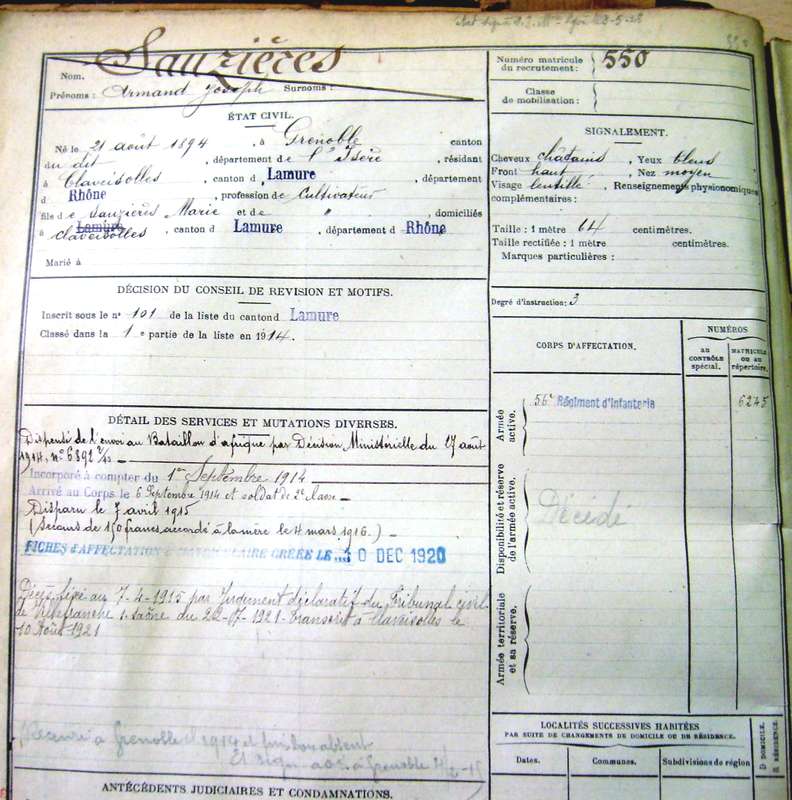 Nom. Sauzières
Prénoms : Armand Joseph Surnoms :
ÉTAT CIVIL.
Né le 21 août 1894, à Grenoble canton
du dit, département de l'Isère, résidant
à Claveisolles, canton d Lamure, département
d Rhône, profession de Cultivateur
fils de Sauzières Marie et de „ domiciliés
à Lamure Claveisolles, canton d Lamure, département d Rhône
Marié à
DÉCISION DU CONSEIL DE REVISION ET MOTIFS.
Inscrit sous le n° 101 de la liste du canton d Lamure
Classé dans la 1e partie de la liste en 1914.
DÉTAIL DES SERVICES ET MUTATIONS DIVERSES.
Dispensé de l'envoi au Bataillon d'afrique par Décision Ministérielle du 27 août
1914, N° 6892
Incorporé à compter du 1er Septembre 1914
Arrivé au Corps le 6 Septembre 1914 et soldat de 2e classe —
Disparu le 7 avril 1915
(Secours de 150 francs accordé à la mère le 4 mars 1916.) —
FICHES d'AFFECTATION CRÉÉE LE 30 DEC 1920
Décès fixé au 7-4-1915 par Jugement déclaratif du Tribunal civil
de Villefranche s. Saône du 22-07-1921 transcrit à Claveisolles le
10 Août 1921
Recensé à Grenoble 1914 et absent
à Grenoble
ANTÉCÉDENTS JUDICIAIRES ET CONDAMNATIONS.
Numéro matricule
du recrutement : 550
Classe
de mobilisation :
SIGNALEMENT.
Cheveux châtains, Yeux bleus
Front haut, Nez moyen
Visage lentillé. Renseignements physionomiques
complémentaires :
Taille : 1 mètre 64 centimètres.
Taille rectifiée : 1 mètre centimètres.
Marques particulières :
Degré d'instruction : 3
CORPS D'AFFECTATION.
NUMÉROS
AU CONTRÔLE spécial.
MATRICULE OU AU répertoire.
Armée active.
56e Régiment d'Infanterie
6245
Disponibilité et réserve de l'armée active.
Décédé
Armée territoriale et sa réserve.
LOCALITÉS SUCCESSIVES HABITÉES
PAR SUITE DE CHANGEMENTS DE DOMICILE OU DE RÉSIDENCE.
Dates.
Communes.
Subdivisions de région
D DOMICILE.
R RÉSIDENCE.